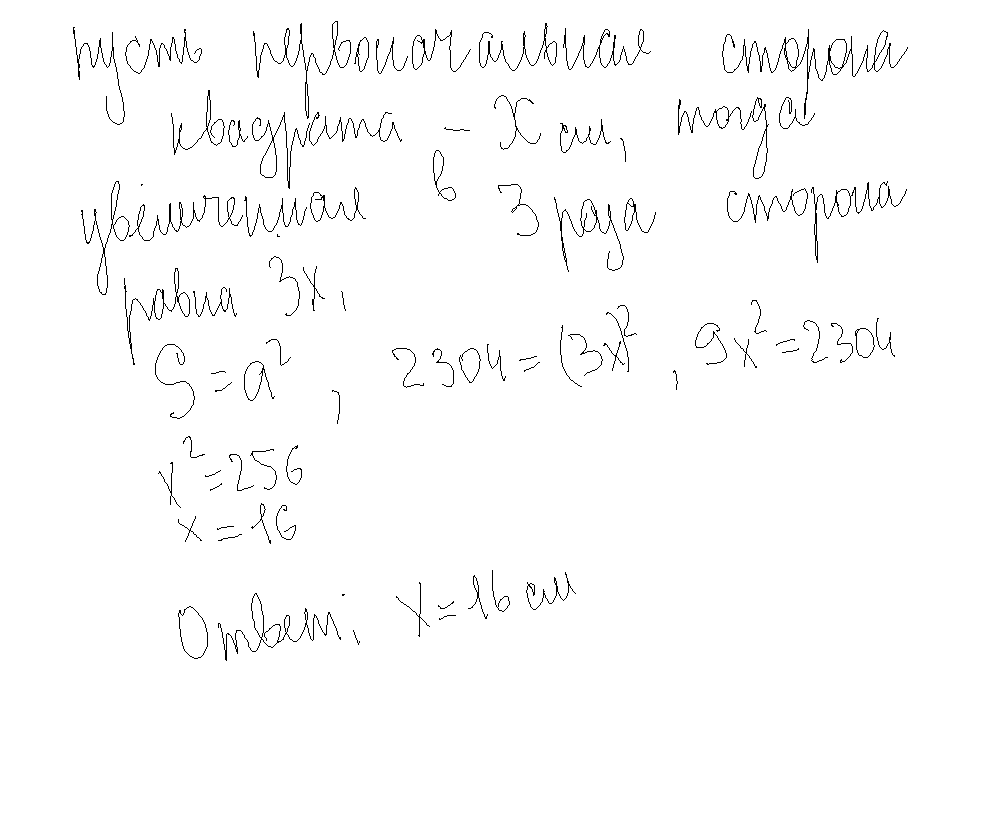 пусть первоначальная сторона
квадрата - X см, тогда
увеличенная в 3 раза сторона
равна 3x,
S=a², 2304=(3x)², 9x²=2304
x²=256
x=16
Ответ: x=16 см